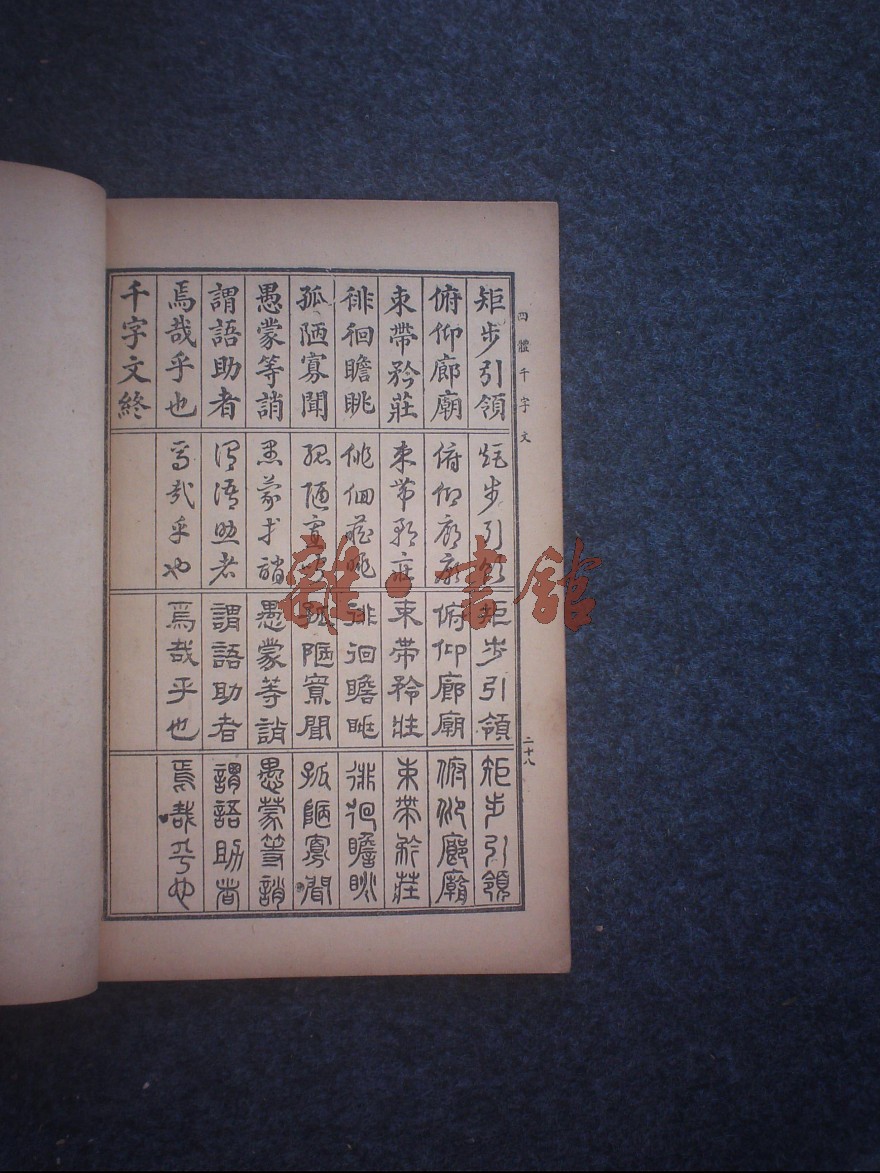 四體千字文
二十八
矩步引領
俯仰廊廟
束帶矜莊
徘徊瞻眺
孤陋寡聞
愚蒙等誚
謂語助者
焉哉乎也
千字文終
矩步引領
俯仰廊廟
束帶矜莊
徘徊瞻眺
孤陋寡聞
愚蒙等誚
謂語助者
焉哉乎也
矩步引領
俯仰廊廟
束帶矜莊
徘徊瞻眺
孤陋寡聞
愚蒙等誚
謂語助者
焉哉乎也
矩步引領
俯仰廊廟
束帶矜莊
徘徊瞻眺
孤陋寡聞
愚蒙等誚
謂語助者
焉哉乎也
雜·書館